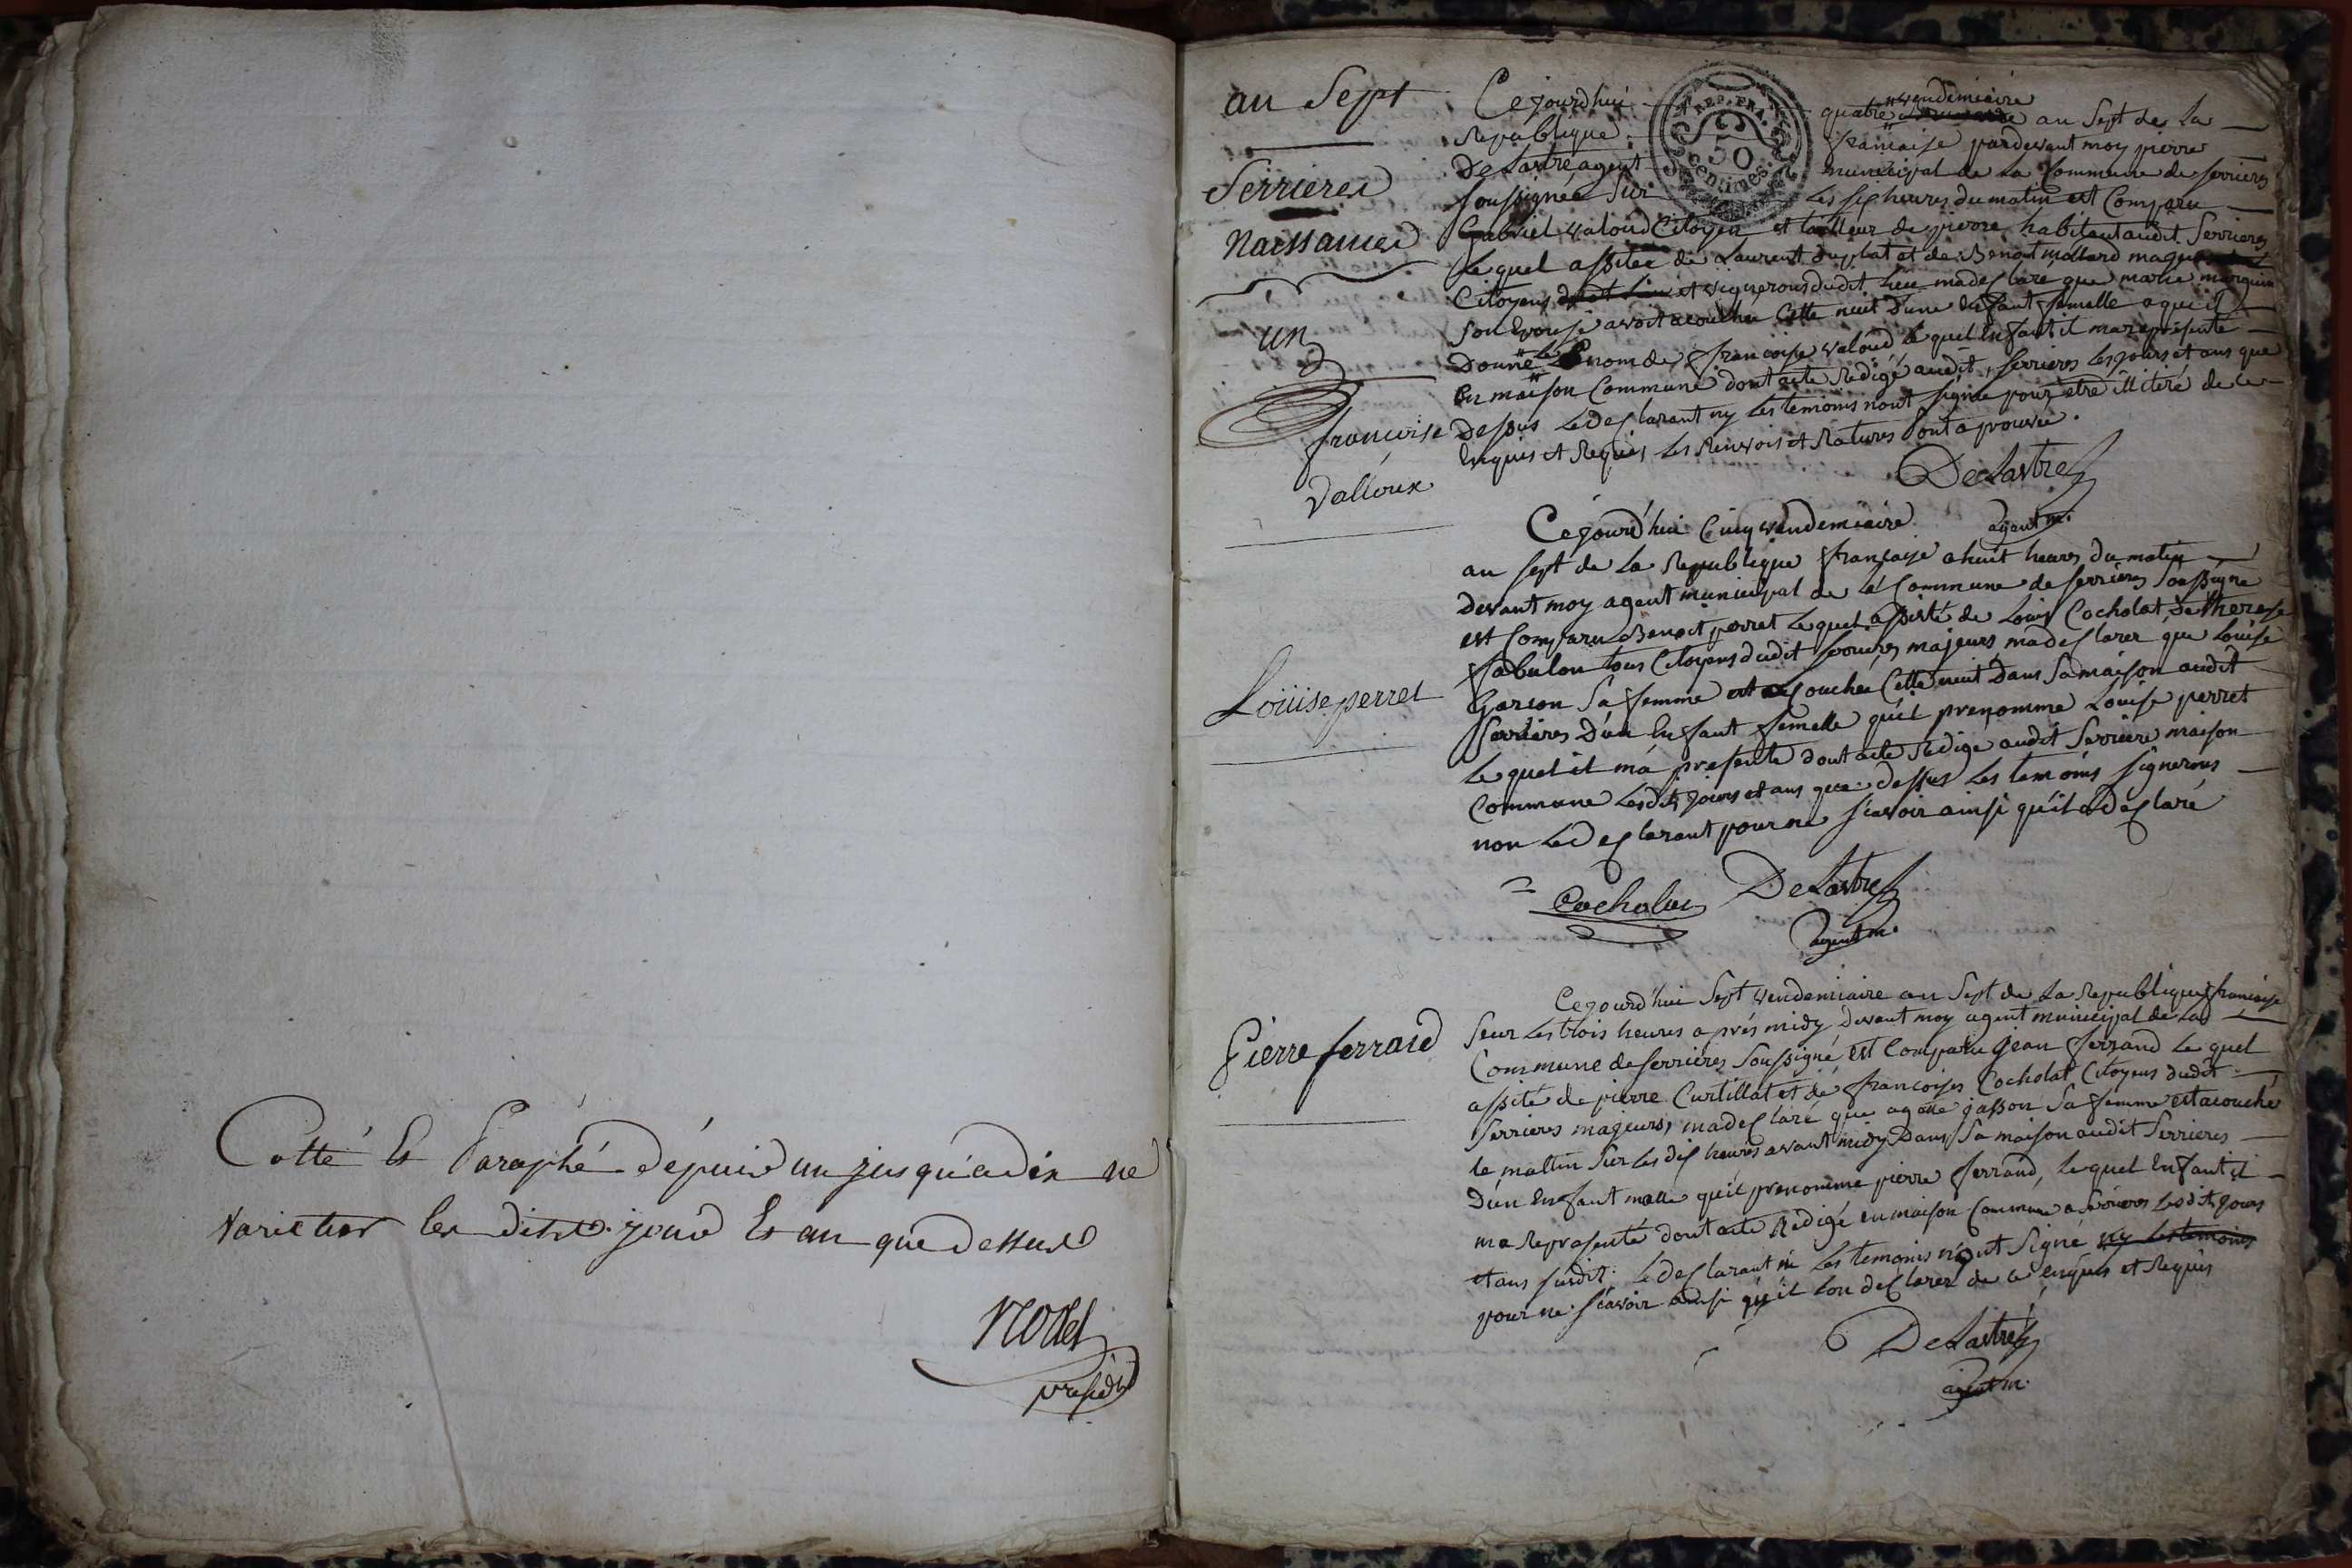 Cotté Et Paraphé dépuis un jusqu'a dix ne
varietur les dits jour Et an que dessus
président
an Sept
Serrieres
Naissances
un
françoise
Valloux
Cejourd'hui quatre vendemiaire an Sept de La
Republique française pardevant moy pierre
DeLastre agent municipal de La Commune de Serrieres
soussignée Sur Les six heures du matin est Comparu
Gabriel valoud Citoyen et tailleur de pierre habitant audit Serrieres
Le quel assitée de Laurent duplat et de Benoit mollard
Citoyens et vignerons dudit Lieu ma desclaré que marie
son Epouse avoit acouchee Cette nuit Dune Enfant femelle a qui il
Donné Le nom de francoise valoud Le quel Enfant il ma representé
En maison Commune dont acte Redigé audit Serrieres Les jours et ans que
Dessus Le Desclarant ny Les temoins nont signée pour etre illiteré de ce
Enquis et Requis, Les Renvois et Ratures sont aprouvée.
REP. FRA.
50
Centimes
DeLastre
agent m.
Louise perret
Cejourd'hui Cinq vendemiaire
an sept de La Republique française a huit heures du matin
Devant moy agent municipal de La Commune de serrieres Soussigné
est Comparu Benoit perret Le quel assisté de Louis Cocholat de therese
fabulon tous Citoyens dudit serrieres majeurs, ma desclarer que Louise
Garson Sa femme est acouchée Cette nuit Dans Sa maison audit
Serrieres D'un Enfant femelle qu'il prenomme Louise perret
Le quel il m'a presenté dont acte Redigé audit Serriere maison
Commune Lesdits jours et ans que dessus Les temoins signerons
non Le Desclarant pour ne sçavoir ainsi qu'il a Desclaré
DeLastre
agent m.
Pierre ferrand
Cejourd'hui Sept vendemiaire an Sept de La Republique française
Seur Les trois heures aprés midy devant moy agent municipal de La
Commune de serriéres Soussigné est Comparu jean ferrand Le quel
assité de pierre Curtillat et de francoises Cocholat Citoyens dudit
Serrieres majeurs, ma desclaré que agatte jasson Sa femme est acouché
le mattin Sur Les dix heures avant midy Dans Sa maison audit Serrieres
D'un Enfant malle qu'il prenomme pierre ferrand, Le quel Enfant il
ma Representé dont acte Redigé en maison Commune a Serrieres Lesdits jours
et ans susdit. Le desclarant ni Les temoins n'ont Signé ny Les temoins
pour ne sçavoir ainsi qu'il Lon desclarer de ce enquis et Requis
DeLastre
agent m.